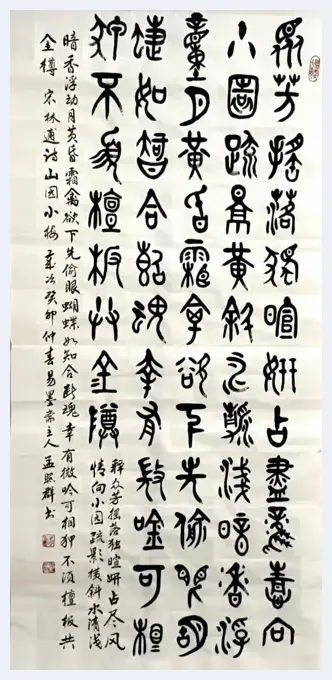 眾芳搖落獨暄妍占盡風情向
小園疏影橫斜水清淺暗香浮
動月黃昏霜禽欲下先偷眼蝴
蜨如智合斷魂幸有微吟可相
狎不須檀板共金樽
释众芳摇落独暄妍占尽风
情向小园疏影横斜水清浅
暗香浮动月黄昏霜禽欲下先偷眼蝴蝶如知合断魂幸有微吟可相狎不须檀板共
金樽 宋林逋诗山园小梅 岁次癸卯仲春易墨斋主人孟照群书